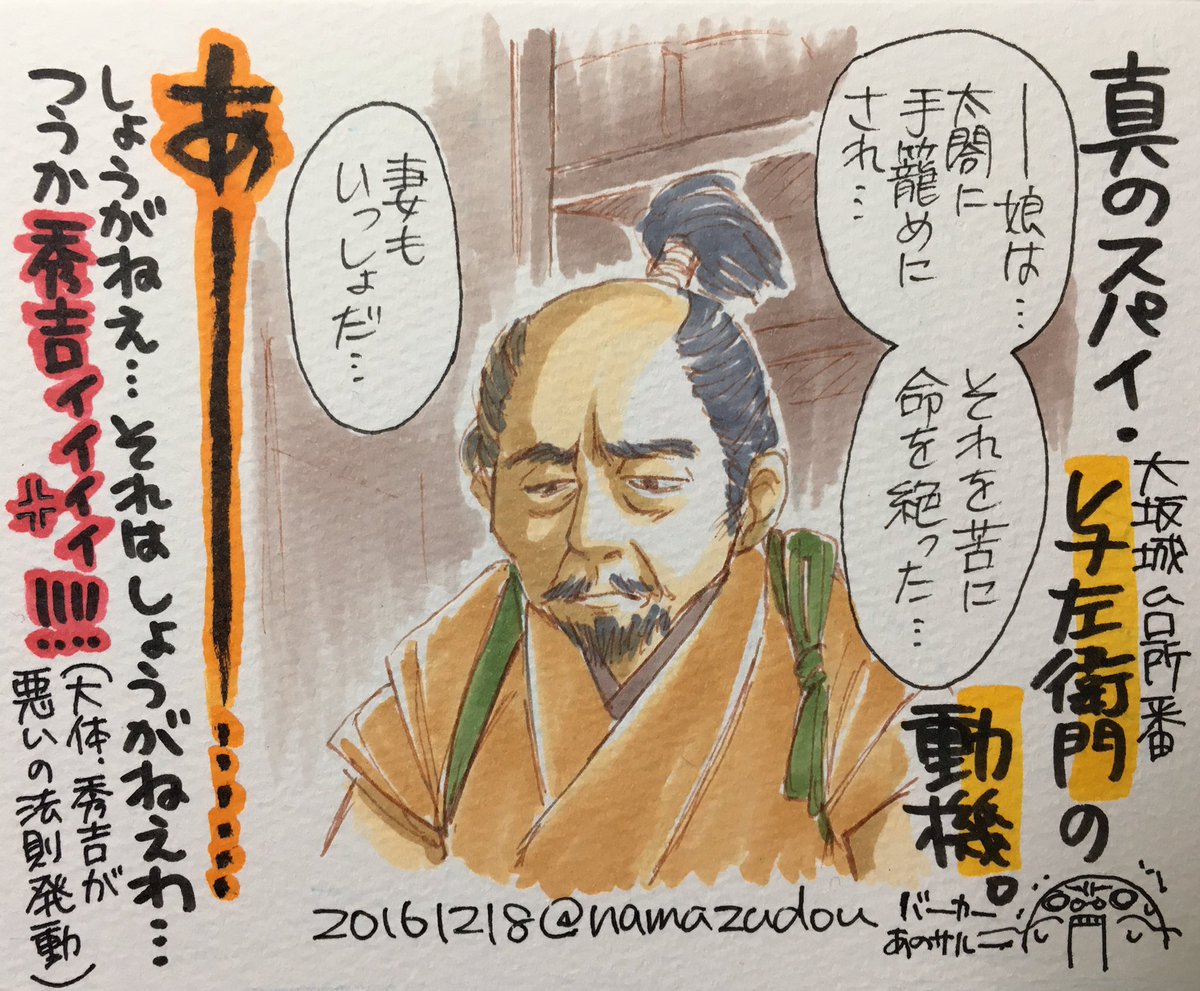 真のスパイ・
大坂城台所番
与左衛門の
動機。
―娘は…
太閤に
手籠めに
され…
それを苦に
命を絶った…
妻も
いっしょだ…
あ―……
しょうがねえ…それはしょうがねえわ…
つうか秀吉ィィィィ!!!!!
(大体、秀吉が
悪いの法則発動)
20161218@namazudou
バーカー
あのサルー